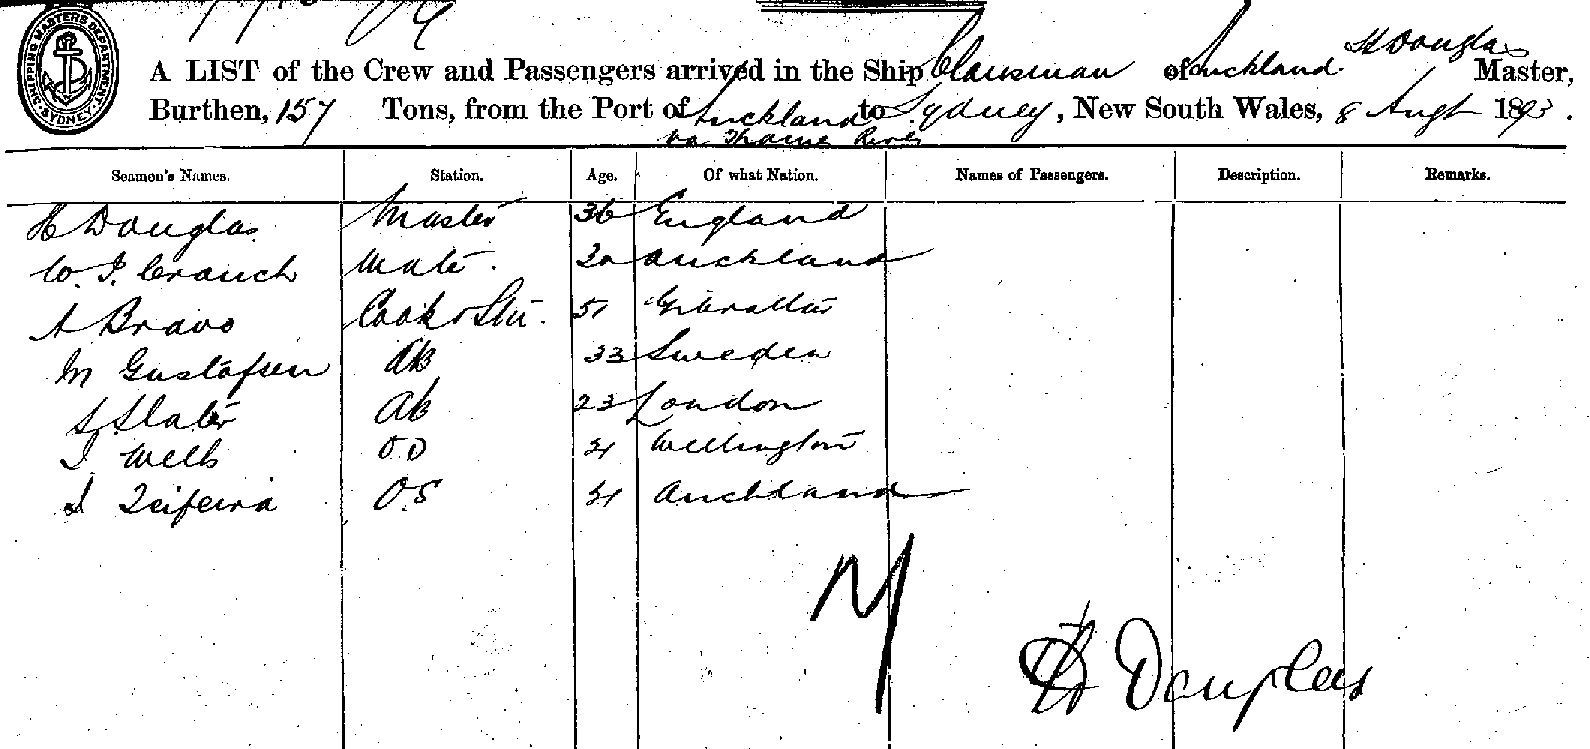 SHIPPING MASTERS DEPARTMENT SYDNEY
H Douglas
A LIST of the Crew and Passengers arrived in the Ship Clansman of Auckland. Master,
Burthen, 157 Tons, from the Port of Auckland to Sydney, New South Wales, 8 Augt 1893.
via Thames River
Seamen's Names. Station. Age. Of what Nation. Names of Passengers. Description. Remarks.
H Douglas Master 36 England
W. J. Crouch Mate. Auckland
A Bravo Cook & Std. 51 Gibraltar
M Gustafsen AB 33 Sweden
Slater AB 23 London
J Wells Wellington
Teifeira OS 21 Auckland
H Douglas